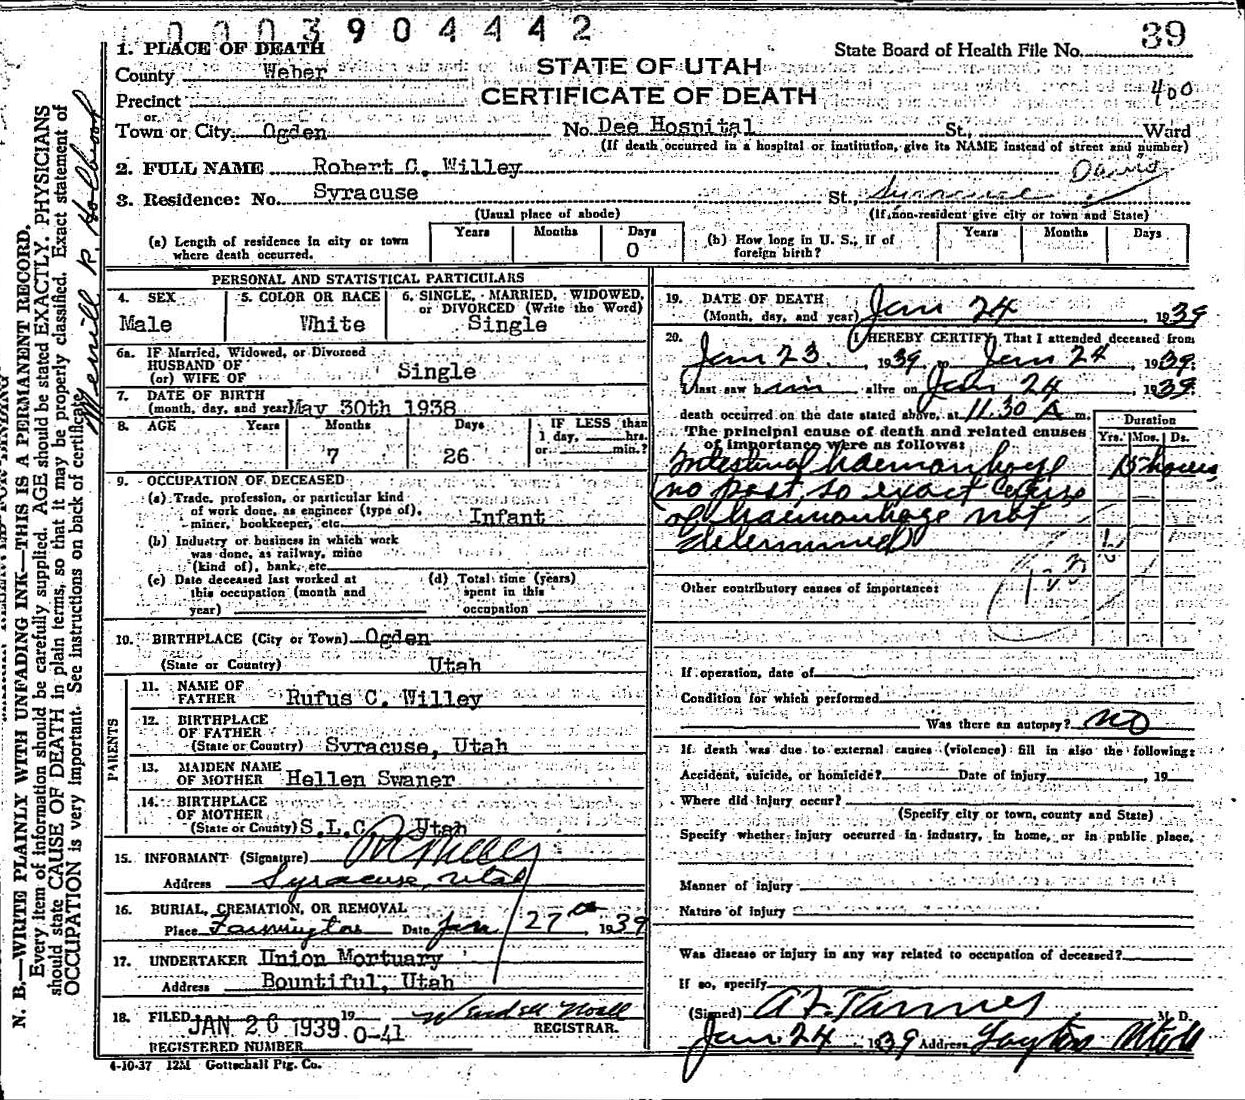 0003904442
39
1. PLACE OF DEATH
State Board of Health File No.
County Weber
STATE OF UTAH
400
Precinct
CERTIFICATE OF DEATH
or
Town or City Ogden No. Dee Hospital St., Ward
(If death occurred in a hospital or institution, give its NAME instead of street and number)
2. FULL NAME Robert C. Willey
Davis
3. Residence: No. Syracuse St., Syracuse
(Usual place of abode) (If non-resident give city or town and State)
(a) Length of residence in city or town where death occurred. Years Months Days 0
(b) How long in U. S., if of foreign birth? Years Months Days
PERSONAL AND STATISTICAL PARTICULARS
4. SEX Male
5. COLOR OR RACE White
6. SINGLE, MARRIED, WIDOWED, or DIVORCED (Write the Word) Single
6a. IF Married, Widowed, or Divorced
HUSBAND OF
(or) WIFE OF Single
7. DATE OF BIRTH
(month, day, and year) May 30th 1938
8. AGE Years Months Days IF LESS than
1 day, hrs.
or min.?
7 26
9. OCCUPATION OF DECEASED
(a) Trade, profession, or particular kind
of work done, as engineer (type of),
miner, bookkeeper, etc. Infant
(b) Industry or business in which work
was done, as railway, mine
(kind of), bank, etc.
(c) Date deceased last worked at
this occupation (month and
year)
(d) Total time (years)
spent in this
occupation
10. BIRTHPLACE (City or Town) Ogden
(State or Country) Utah
PARENTS
11. NAME OF
FATHER Rufus C. Willey
12. BIRTHPLACE
OF FATHER
(State or Country) Syracuse, Utah
13. MAIDEN NAME
OF MOTHER Hellen Swaner
14. BIRTHPLACE
OF MOTHER
(State or County) S.L.C. Utah
15. INFORMANT (Signature)
Address Syracuse, Utah
16. BURIAL, CREMATION, OR REMOVAL
Place Farmington Date Jan 27th, 1939
17. UNDERTAKER Union Mortuary
Address Bountiful, Utah
18. FILED JAN 26 1939 19
REGISTRAR.
REGISTERED NUMBER 0-41
4-10-37 12M Gottschall Ptg. Co.
19. DATE OF DEATH
(Month, day, and year) Jan 24, 1939
20. I HEREBY CERTIFY, That I attended deceased from
Jan 23, 1939, to Jan 24, 1939.
I last saw him alive on Jan 24, 1939.
death occurred on the date stated above, at 11.30 A m.
The principal cause of death and related causes
of importance were as follows:
Duration
Yrs. Mos. Ds.
Intestinal haemorrhage 15 hours
(no post so exact cause
of haemorrhage not
determined)
Other contributory causes of importance:
If operation, date of
Condition for which performed
Was there an autopsy? no
If death was due to external causes (violence) fill in also the following:
Accident, suicide, or homicide? Date of injury , 19
Where did injury occur?
(Specify city or town, county and State)
Specify whether injury occurred in industry, in home, or in public place.
Manner of injury
Nature of injury
Was disease or injury in any way related to occupation of deceased?
If so, specify
(Signed) M. D.
Jan. 24 1939 Address Layton Utah
N. B.—WRITE PLAINLY WITH UNFADING INK—THIS IS A PERMANENT RECORD.
Every item of information should be carefully supplied. AGE should be stated EXACTLY. PHYSICIANS
should state CAUSE OF DEATH in plain terms, so that it may be properly classified. Exact statement of
OCCUPATION is very important. See instructions on back of certificate.
Merrill R. Holbrook